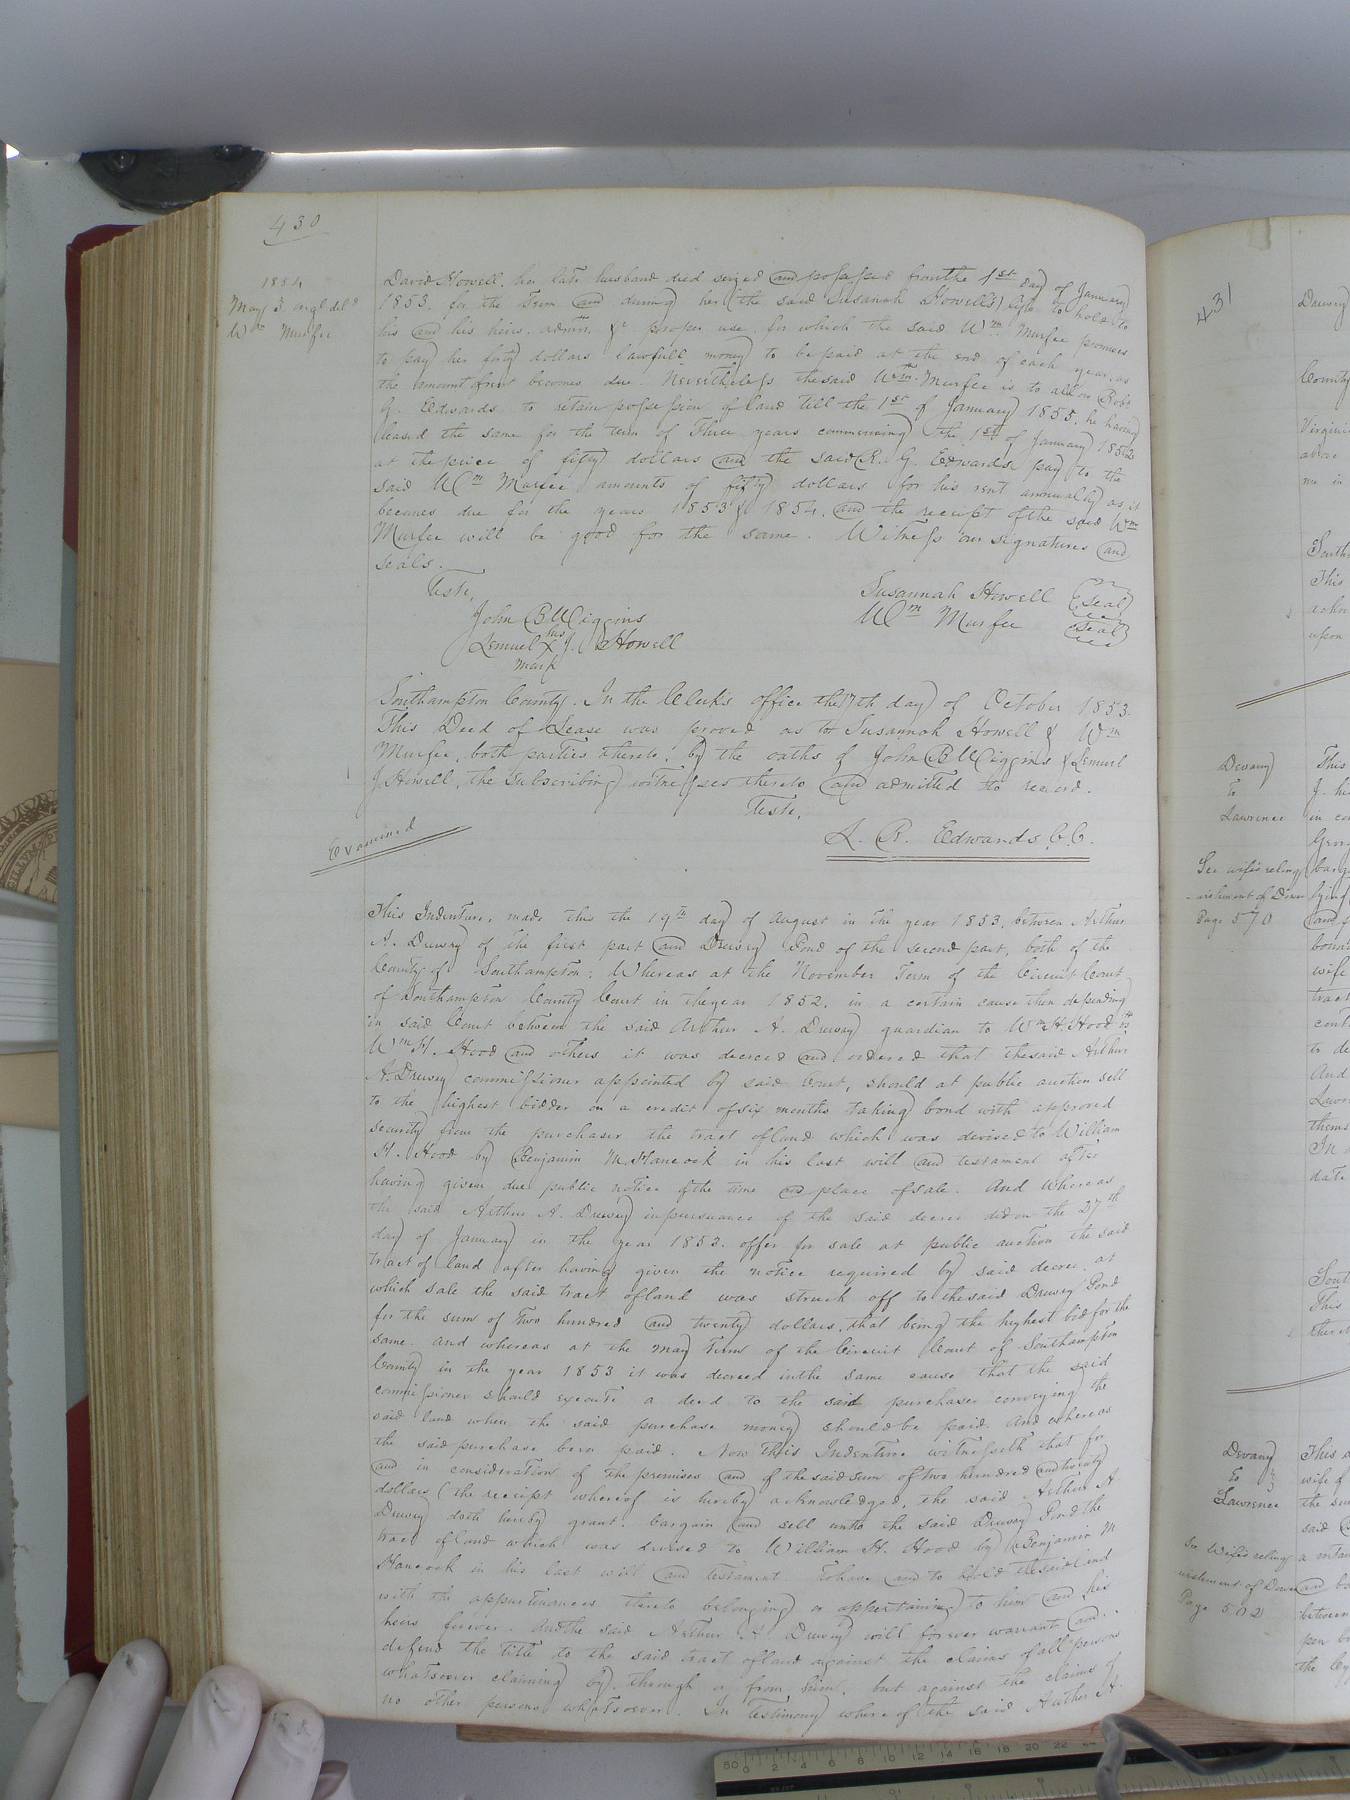 430
1854
May 3. orgl deld
Wm Murfee
David Howell, her late husband died seized and possessed from the 1st day of January
1853, for the Term and during her (the said Susanah Howell's) life to hold to
his and his heirs, admtr. &c proper use, for which the said Wm. Murfee promises
to pay her forty dollars lawfull money to be paid at the end of each year, as
the amount of rent becomes due. Nevertheless the said Wm. Murfee is to allow Robt
G. Edwards to retain possession of land till the 1st of January 1855, he having
leased the same for the term of Three years commencing the 1st of January 1852
at the price of fifty dollars and the said R. G. Edwards pay to the
said Wm Murfee amounts of fifty dollars for his rent annually as it
becomes due for the years 1853 & 1854, and the receipt of the said Wm
Murfee will be good for the same. Witness our signatures and
seals.
Teste,
Susannah Howell (Seal)
John B Wiggins
Wm Murfee (Seal)
his
Lemuel X J. Howell
mark
Southampton County. In the Clerk's office the 17th day of October 1853.
This Deed of Lease was proved as to Susannah Howell & Wm
Murfee, both parties thereto, by the oaths of John B Wiggins & Lemuel
J. Howell, the Subscribing witnesses thereto and admitted to record.
Teste,
L. R. Edwards, C.C.
Examined
This Indenture, made this the 19th day of August in the year 1853, between Arthur
A. Drewry of the first part and Drewry Pond of the second part, both of the
County of Southampton: Whereas at the November Term of the Circuit Court
of Southampton County Court in the year 1852, in a certain cause then depending
in said Court between the said Arthur A. Drewry guardian to Wm H. Hood vs
Wm H. Hood and others it was decreed and ordered that the said Arthur
A. Drewry commissioner appointed by said Court, should at public auction sell
to the highest bidder on a credit of six months taking bond with approved
security from the purchaser the tract of land which was devised to William
H. Hood by Benjamin M. Hancock in his last will and testament after
having given due public notice of the time and place of sale. And whereas
the said Arthur A. Drewry in pursuance of the said decree did on the 27th
day of January in the year 1853. offer for sale at public auction the said
tract of land after having given the notice required by said decree, at
which sale the said tract of land was struck off to the said Drewry Pond
for the sum of Two hundred and twenty dollars, that being the highest bid for the
same. and whereas at the May Term of the Circuit Court of Southampton
County in the year 1853 it was decreed in the same cause that the said
commissioner should execute a deed to the said purchaser conveying the
said land when the said purchase money should be paid. And whereas
the said purchase been paid. Now this Indenture witnesseth that for
and in consideration of the premises and of the said sum of two hundred and twenty
dollars (the receipt whereof is hereby acknowledged, the said Arthur A
Drewry doth hereby grant, bargain and sell unto the said Drewry Pond the
tract of land which was devised to William H. Hood by Benjamin M
Hancock in his last will and testament To have and to hold the said land
with the appurtenances thereto belonging or appertaining to him and his
heirs forever. And the said Arthur A. Drewry will forever warrant and
defend the title to the said tract of land against the claims of all persons
whatsoever claiming by, through or from him, but against the claims of
no other persons whatsoever. In Testimony whereof the said Arthur A.
431
Drewry
County
Virginia
above
me in
South
This
upon
Devany
to
Lawrence
See wife's relinq
-uishment of Dower
Page 570
This
J. his
in co
Geor
barg
lying
and
boun
wife
tract
cont
to de
And
Lawr
thems
In
date
Sout
This
Devany
to
Lawrence
See Wife's relinq
uishment of Dower
Page 502
This
wife of
the se
said
and bo
between
the